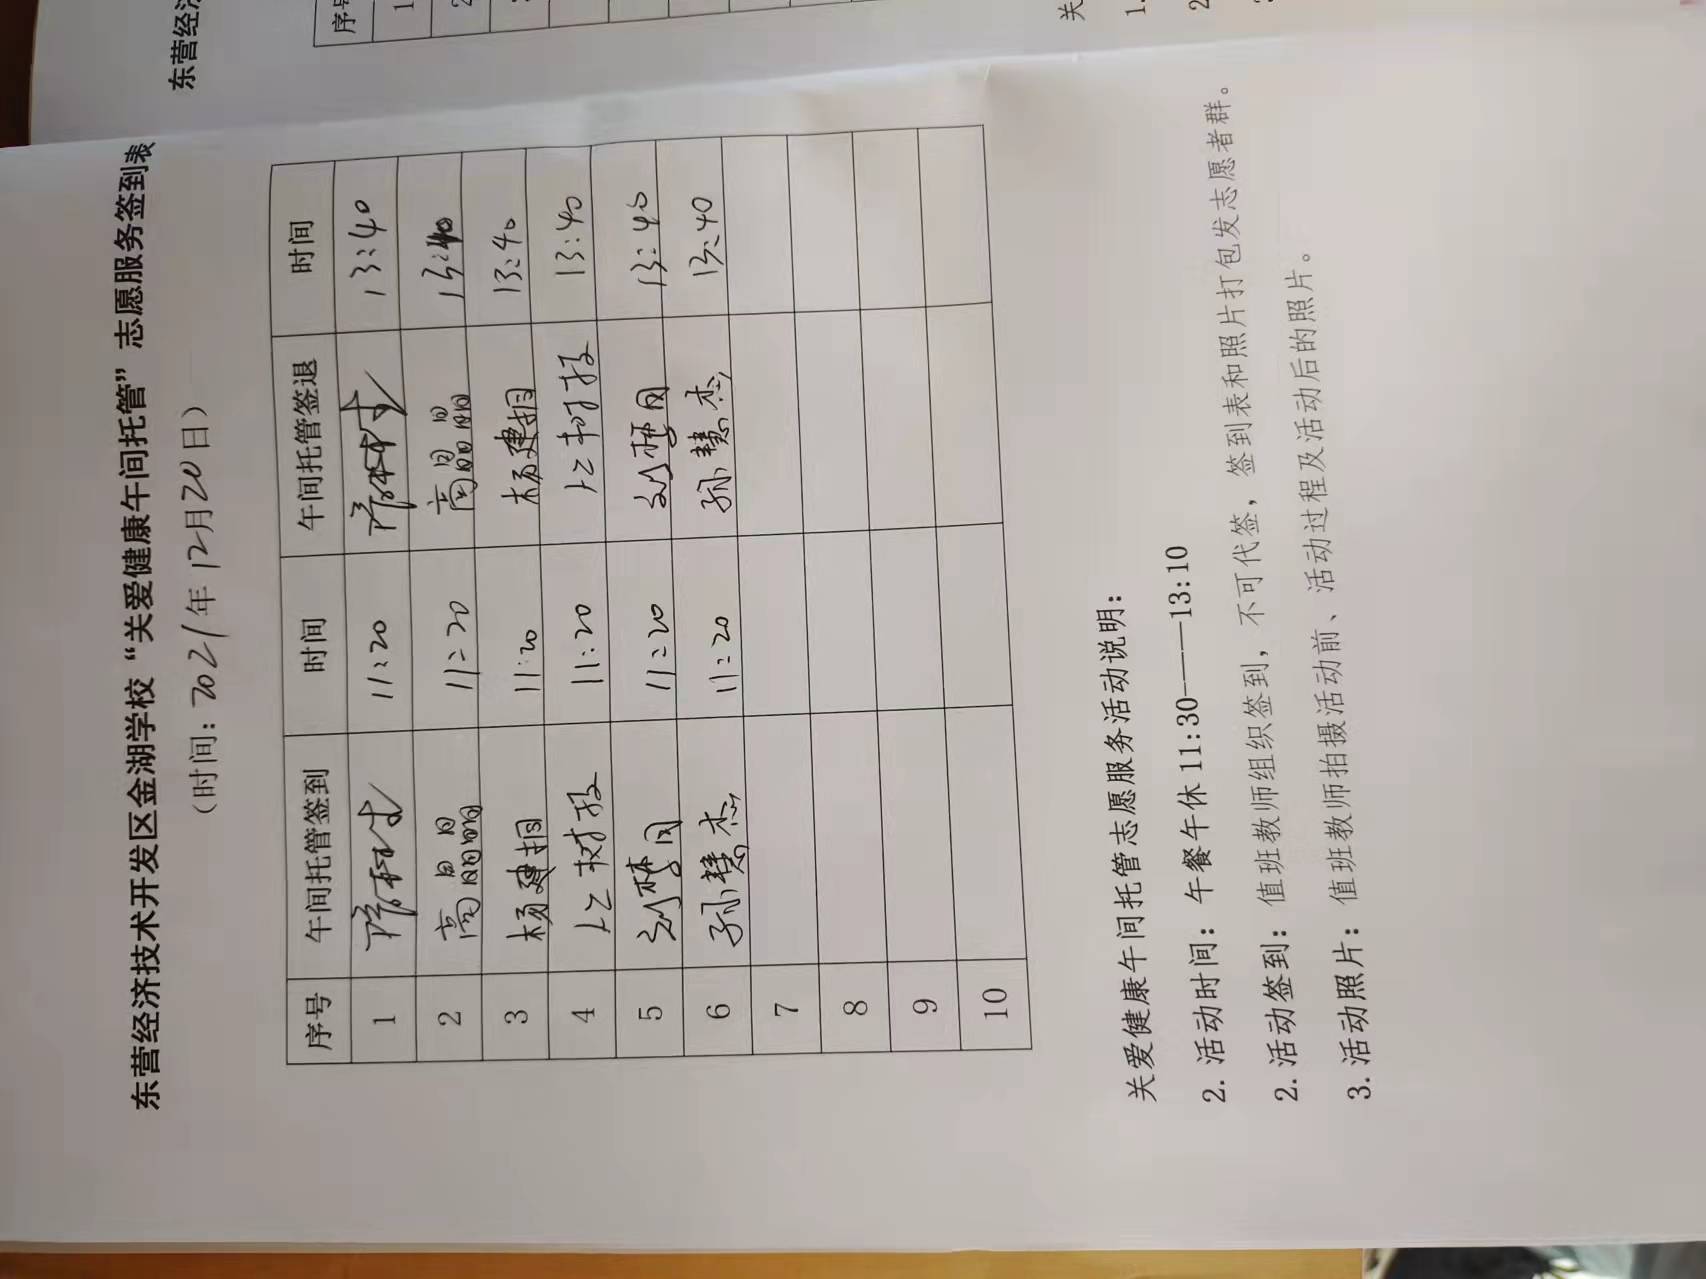 东营经济技术开发区金湖学校“关爱健康午间托管”志愿服务签到表
（时间：2021年12月20日）
序号 午间托管签到 时间 午间托管签退 时间
1 11:20 13:40
2 高晶晶 11:20 高晶晶 13:40
3 杨建娟 11:20 杨建娟 13:40
4 11:20 13:40
5 刘梦月 11:20 刘梦月 13:40
6 孙慧杰 11:20 孙慧杰 13:40
7
8
9
10
关爱健康午间托管志愿服务活动说明：
2. 活动时间：午餐午休 11:30——13:10
2. 活动签到：值班教师组织签到，不可代签，签到表和照片打包发志愿者群。
3. 活动照片：值班教师拍摄活动前、活动过程及活动后的照片。
东营经济
序号
1
2
关
1.
2